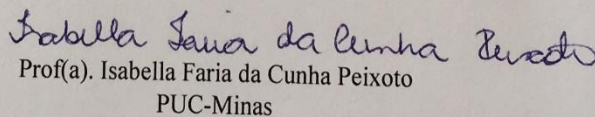 Isabella Faria da Cunha Peixoto
Prof(a). Isabella Faria da Cunha Peixoto
PUC-Minas